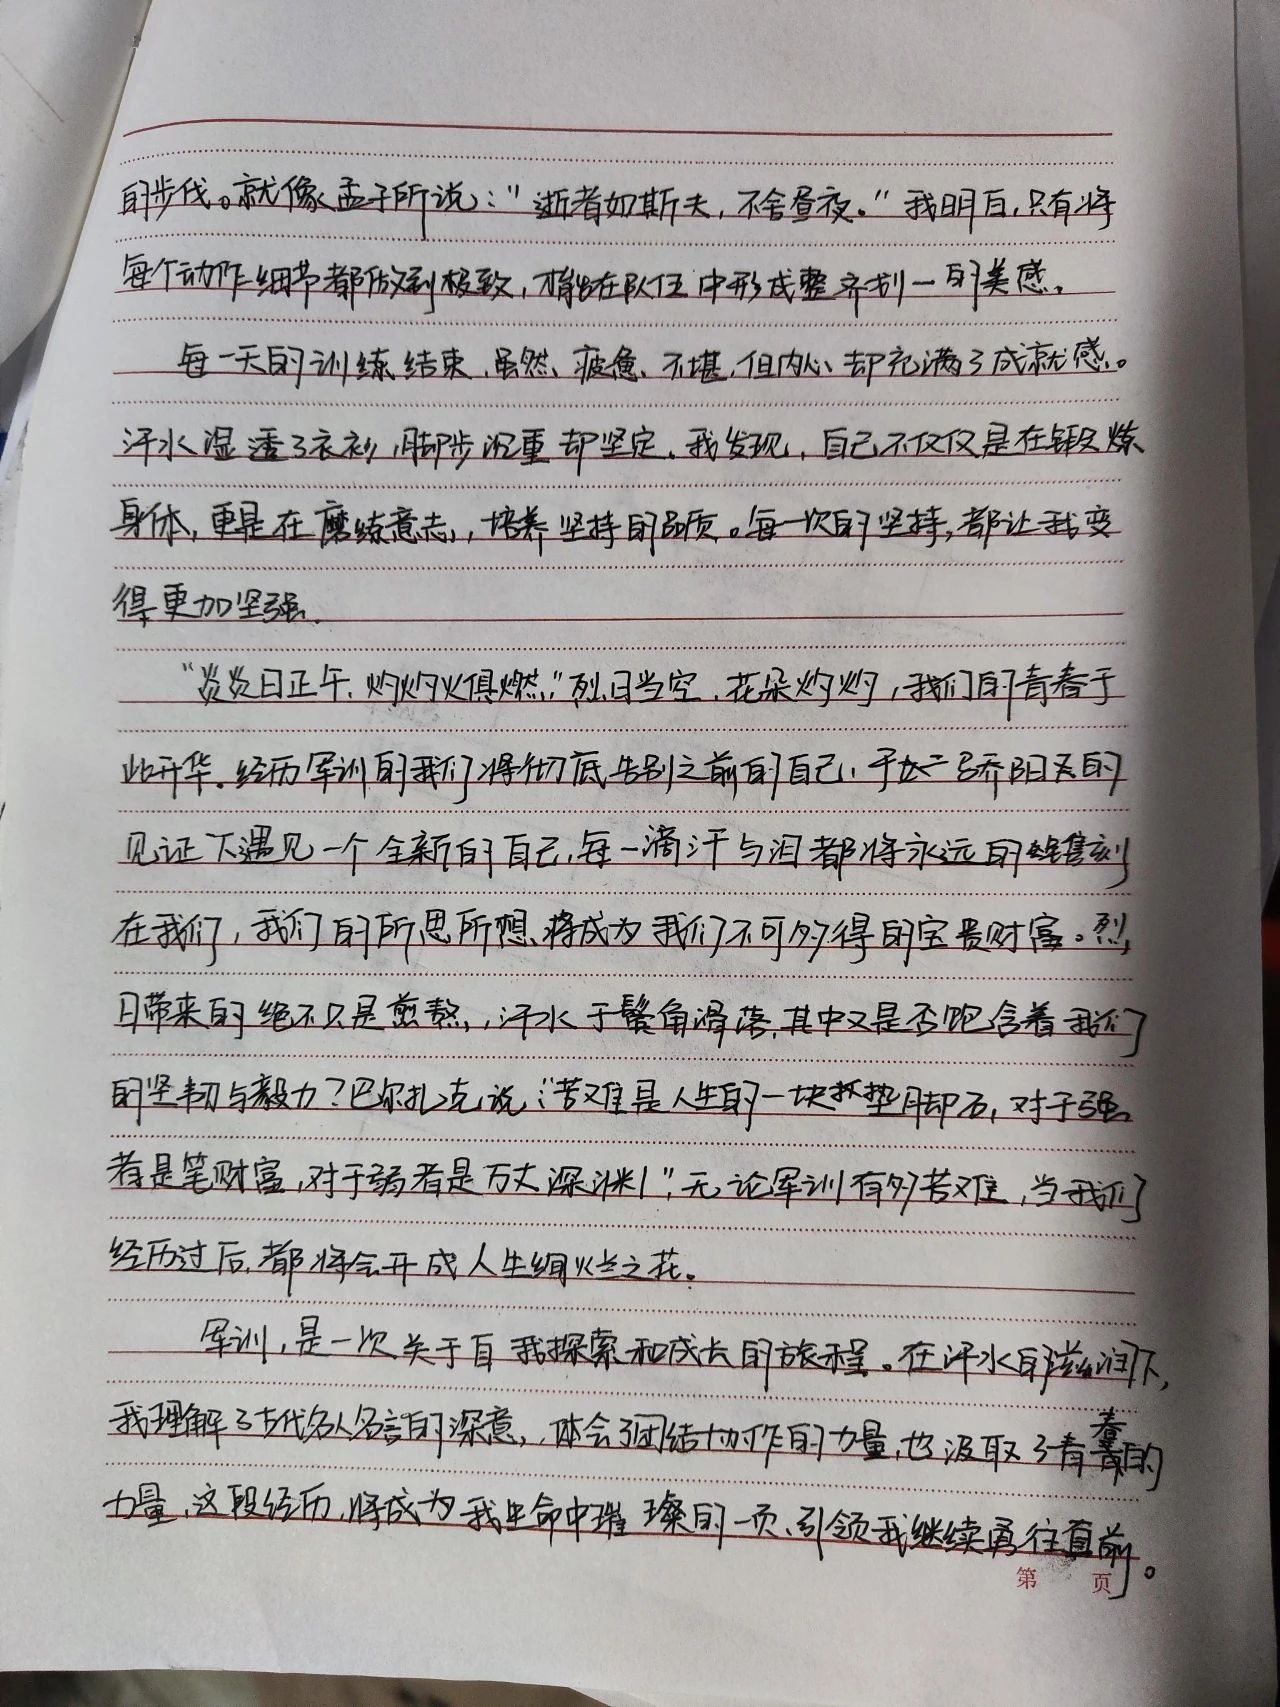 的步伐。就像孟子所说："逝者如斯夫,不舍昼夜。"我明白,只有将
每个动作细节都做到极致,才能在队伍中形成整齐划一的美感。
每一天的训练结束,虽然疲惫不堪,但内心却充满了成就感。
汗水湿透了衣衫,脚步沉重却坚定。我发现,自己不仅仅是在锻炼
身体,更是在磨练意志,培养坚持的品质。每一次的坚持,都让我变
得更加坚强.
"炎炎日正午,灼灼火俱燃"烈日当空,花朵灼灼,我们的青春于
此开华.经历军训的我们将彻底告别之前的自己,于骄阳的
见证下遇见一个全新的自己,每一滴汗与泪都将永远的镌刻
在我们,我们的所思所想将成为我们不可多得的宝贵财富。烈
日带来的绝不只是煎熬,汗水于鬓角滑落,其中又是否饱含着我们
的坚韧与毅力?巴尔扎克说:"苦难是人生的一块垫脚石,对于强
者是笔财富,对于弱者是万丈深渊",无论军训有多苦难,当我们
经历过后,都将会开成人生绚烂之花。
军训,是一次关于自我探索和成长的旅程。在汗水的滋润下,
我理解了古代名人名言的深意,体会了团结协作的力量,也汲取了青春的
力量,这段经历,将成为我生命中璀璨的一页,引领我继续勇往直前。
第 页